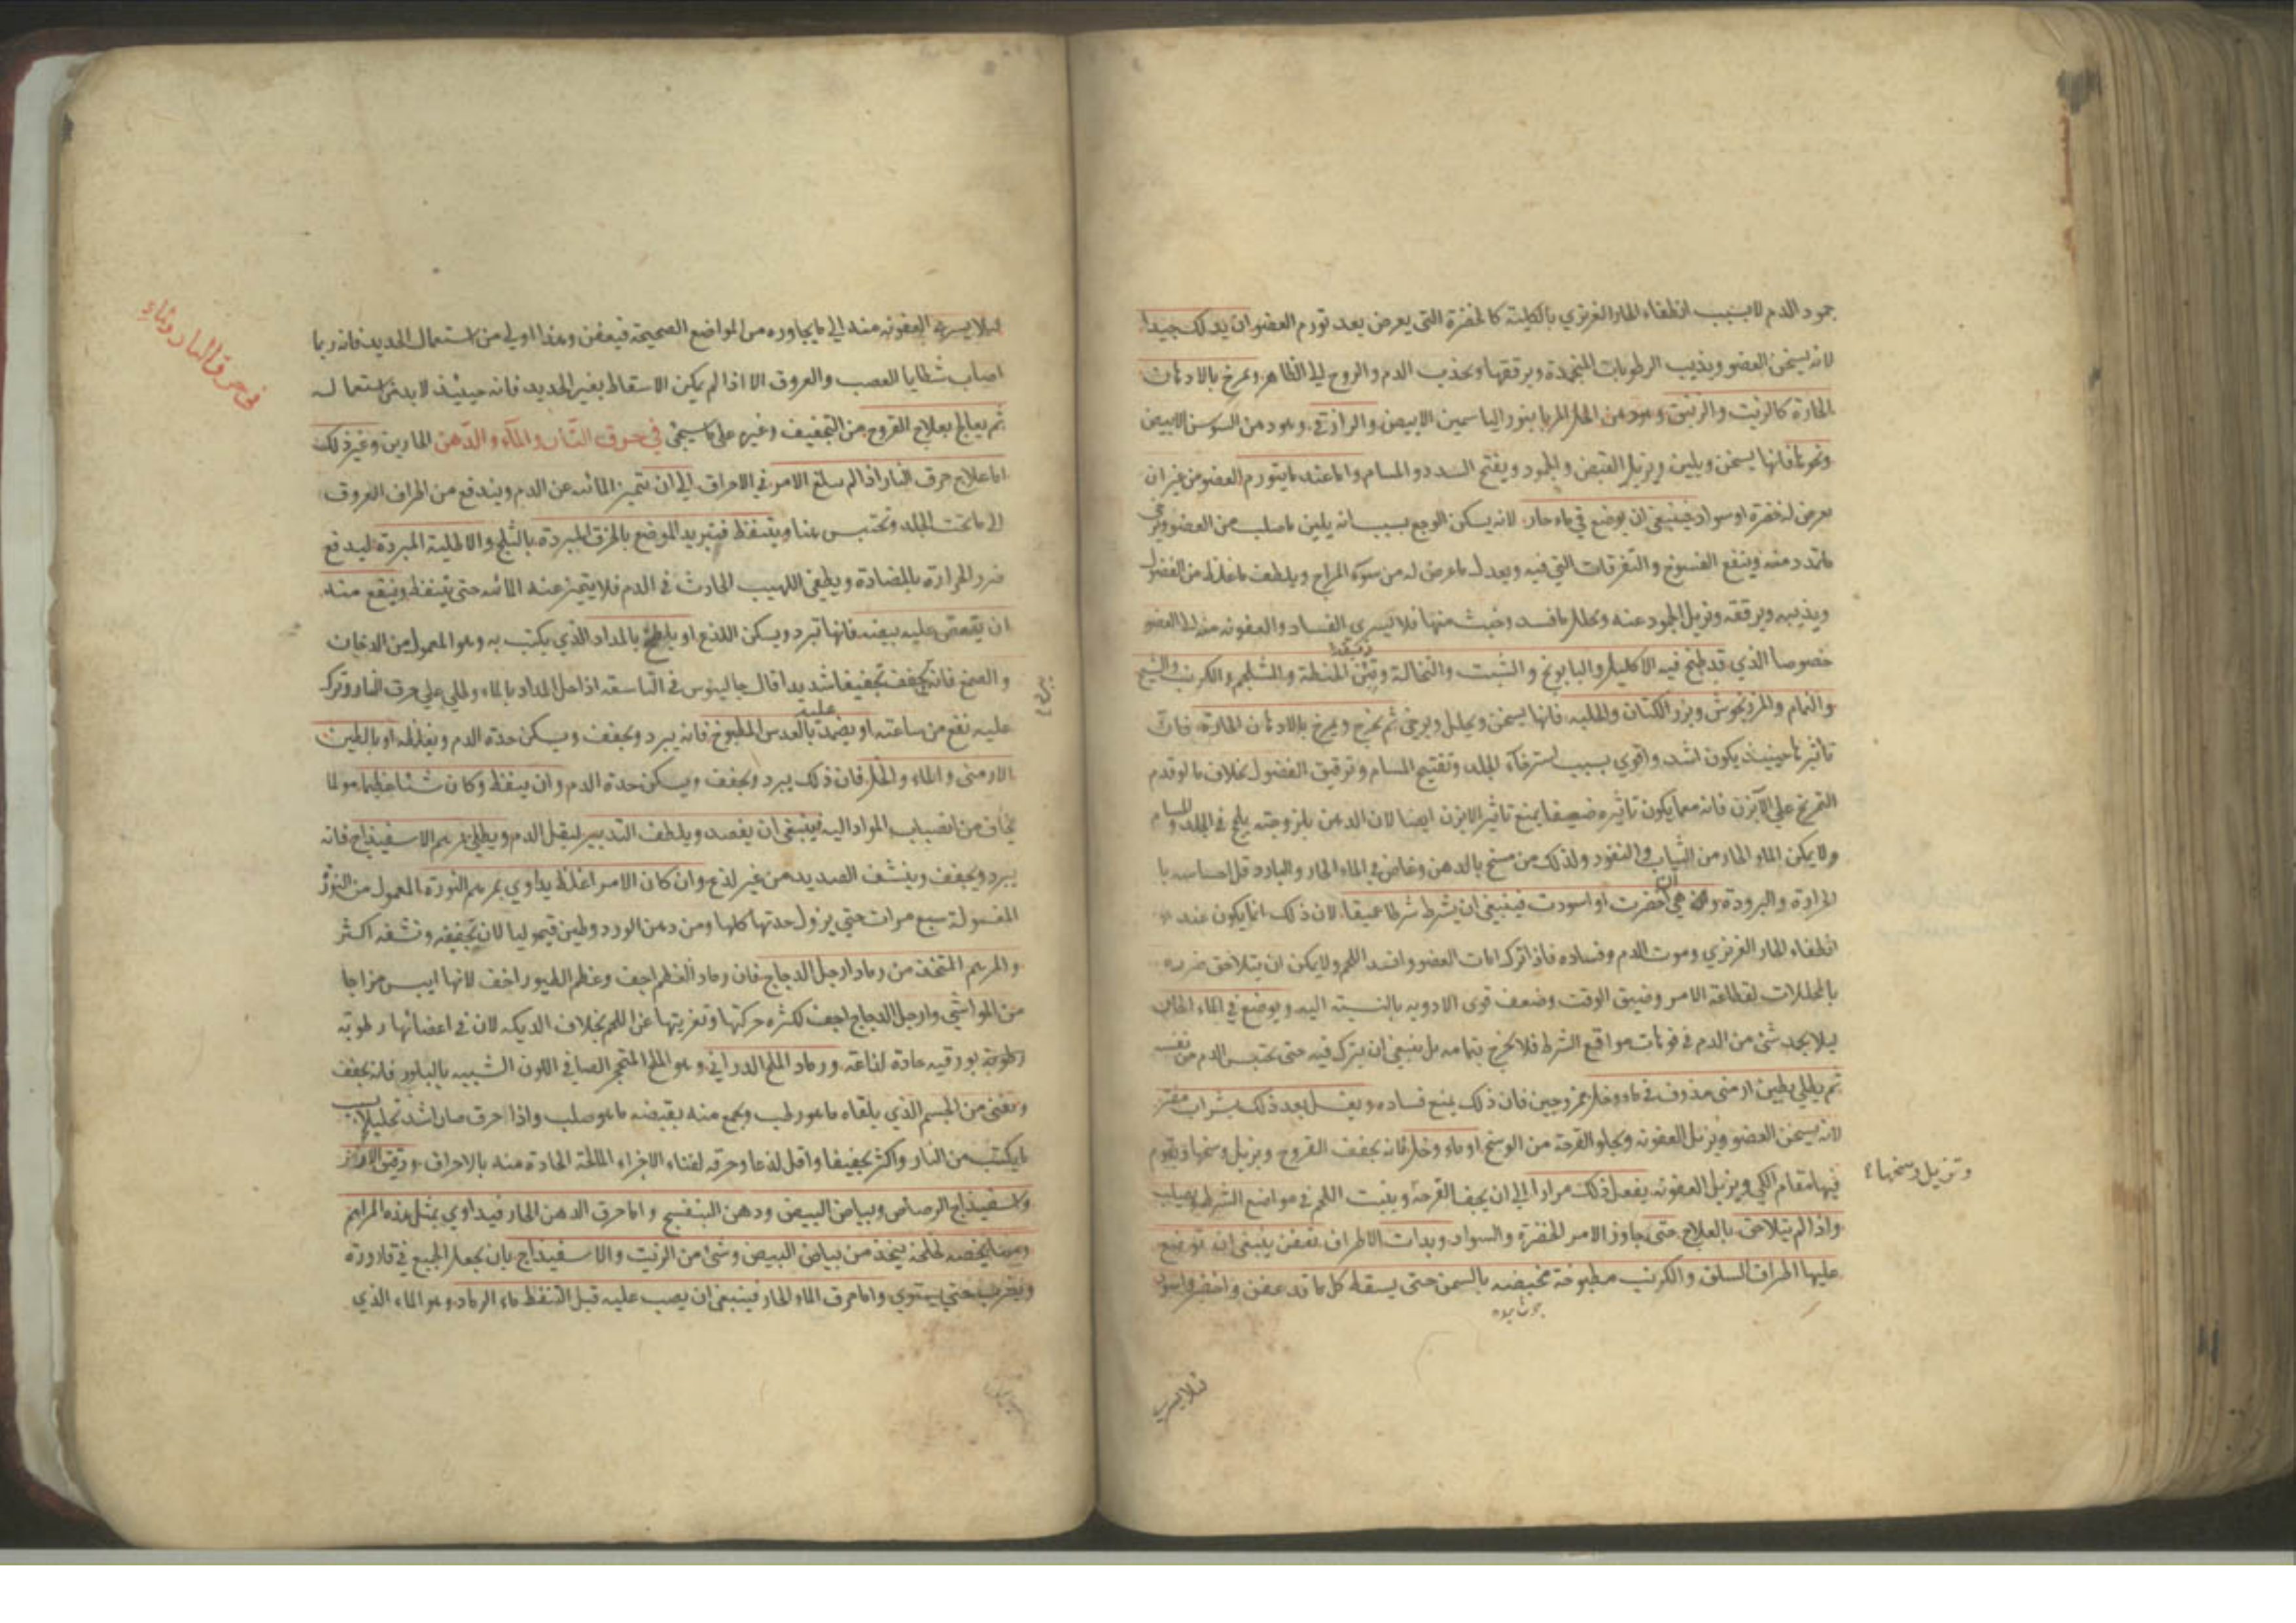 جمود الدم لا بسبب انطفاء الحار الغريزي بالكلية كالخضرة التي يعرض بعد تورم العضو ان يدلك جيدا
لانه يسخن العضو ويذيب الرطوبات المنجمدة ويرققها ويجذب الدم والروح الى الظاهر ويمرخ بالادهان
الحارة كالزيت والزنبق وهو دهن الحل المربا بنور الياسمين الابيض والرازقي وهو دهن السوسن الابيض
ونحوها فانها يسخن ويلين ويزيل القبض والجمود ويفتح السدد والمسام واما عند ما يتورم العضو من غير ان
يعرض له خضرة او سواد فينبغي ان يوضع في ماء حار لانه يسكن الوجع بسبب انه يلين ما صلب من العضو ويرخي
ما تمدد منه وينفع الفسوخ والتفرقات التي فيه ويعدل ما عرض له من سوء المزاج ويلطف ما غلظ من الفضول
ويذيبه ويرققه ويزيل الجمود عنه ويحلل ما فسد وخبث منها فلا يسري الفساد والعفونة منه الى العضو
خصوصا الذي قد طبخ فيه الاكليل والبابونج والشبت والنخالة وتبن الحنطة والشلجم والكرنب والشيح
والنمام والمرزنجوش وبزر الكتان والحلبه فانها يسخن ويحلل ويرخي ثم يخرج ويمرخ بالادهان الحارة فان
تأثيرها حينئذ يكون اشد واقوي بسبب استرخاء الجلد وتفتيح المسام وترقيق الفضول بخلاف ما لو قدم
التمريخ علي الآبزن فانه مما يكون تاثيره ضعيفا يمنع تاثير الابزن ايضا لان الدهن بلزوجته يلحج في الجلد والمسام
ولا يمكن الماء الحار من النفوذ ولذلك من مسح بالدهن وغاص في الماء الحار والبارد قل احساسه با
لحرارة والبرودة وان هي اخضرت او اسودت فينبغي ان يشرط شرطا عميقا لان ذلك انما يكون عند
انطفاء الحار الغريزي وموت الدم وفساده فاذا ترك امات العضو وافسد اللحم ولا يمكن ان يتلاحق ضرره
بالمحللات لفظاعة الامر وضيق الوقت وضعف قوي الادويه بالنسبة اليه ويوضع في الماء الحار
ليلا يجمد شئ من الدم في فوهات مواقع الشرط فلا يخرج بتمامه بل ينبغي ان يترك فيه حتى يحتبس الدم من نفسه
ثم يطلي بطين ارمني مذوف في ماء وخل ممزوجين فان ذلك يمنع فساده ويغسل بعد ذلك بشراب مفتر
لانه يسخن العضو ويزيل العفونه ويجلو القرحة من الوسخ او ماء وخل فانه يجفف القروح ويزيل وسخها ويقوم
فيها مقام الكي ويزيل العفونه يفعل ذلك مرارا الى ان يجف القرحة وينبت اللحم في مواضع الشرط
وتزيل وسخها
واذا لم يتلاحق بالعلاج حتى جاوز الامر الخضرة والسواد وبدات الاطراف تتعفن ينبغي ان توضع
عليها اطراف السلق والكرنب مطبوخة مخبصة بالسمن حتى يسقط كل ما قد عفن واخضر واسود
لئلا يسري العفونه منه الى ما يجاوره من المواضع الصحيحة فيعفن وهذا اولي من استعمال الحديد فانه ربما
اصاب شظايا العصب والعروق الا اذا لم يمكن الاسقاط بغير الحديد فانه حينئذ لا بد من استعماله
ثم يعالج بعلاج القروح من التجفيف وغيره على ما سيجئ في حرق النار والماء والدهن الحارين وغير ذلك
اما علاج حرق النار اذا لم يبلغ الامر في الاحراق الى ان يتميز المائيه عن الدم ويندفع من اطراف العروق
الى ما تحت الجلد وتحتبس هنا ويتنفط فتبريد الموضع بالخرق المبردة بالثلج والاطلية المبردة ليدفع
ضرر الحرارة بالمضادة ويطفئ اللهيب الحادث في الدم فلا يتميز عنه المائيه حتى يتنفط وينفع منه
ان يقص عليه بيضه فانها تبرد ويسكن اللذع او يلطخ بالمداد الذي يكتب به وهو المعمول من الدخان
والصمغ فانه يجفف تجفيفا شديدا قال جالينوس في التاسعه اذا حل المداد بالماء وطلي علي حرق النار وترك
عليه نفع من ساعته او يضمد بالعدس المطبوخ فانه يبرد ويجفف ويسكن حدة الدم ويغلظه او بالطين
الارمني والماء والخل فان ذلك يبرد ويجفف ويسكن حدة الدم وان ينفط وكان شيئا عظيما مولما
يخاف من انصباب المواد اليه فينبغي ان يفصد ويلطف التدبير ليقل الدم ويطلي بمرهم الاسفيذاج فانه
يبرد ويجفف وينشف الصديد من غير لذع وان كان الامر اغلظ يداوي بمرهم النورة المعمول من النورة
المغسولة سبع مرات حتي يزول حدتها كلها ومن دهن الورد وطين قيموليا لان تجفيفه ونشفه اكثر
والمرهم المتخذ من رماد ارجل الدجاج فان رماد العظم اجف وعظم الطيور اخف لانها ايبس مزاجا
من المواشي وارجل الدجاج اجف لكثرة حركتها وتعريتها عن اللحم بخلاف الديكه لان في اعضائها رطوبة
رطوبة بورقيه حادة لذاعة ورماد الملح الدراني وهو الملح المتحجر الصافي اللون الشبيه بالبلور فانه يجفف
ويفني من الجسم الذي يلقاه ما هو رطب ويجمع منه بقبضه ما هو صلب واذا احرق صار اشد تحليلا بسبب
ما يكتسب من النار واكثر تجفيفا واقل لذعا وحرقه لفناء الاجزاء المالحة الحادة منه بالاحراق ودقيق الارز
واسفيذاج الرصاص وبياض البيض ودهن البنفسج واما حرق الدهن الحار فيداوي بمثل هذه المراهم
ومما يخصه طلخه يتخذ من بياض البيض وشئ من الزيت والاسفيذاج بان يجعل الجميع في قارورة
ويضرب حتي يستوي واما حرق الماء الحار فينبغي ان يصب عليه قبل التنفط ماء الرماد وهو الماء الذي